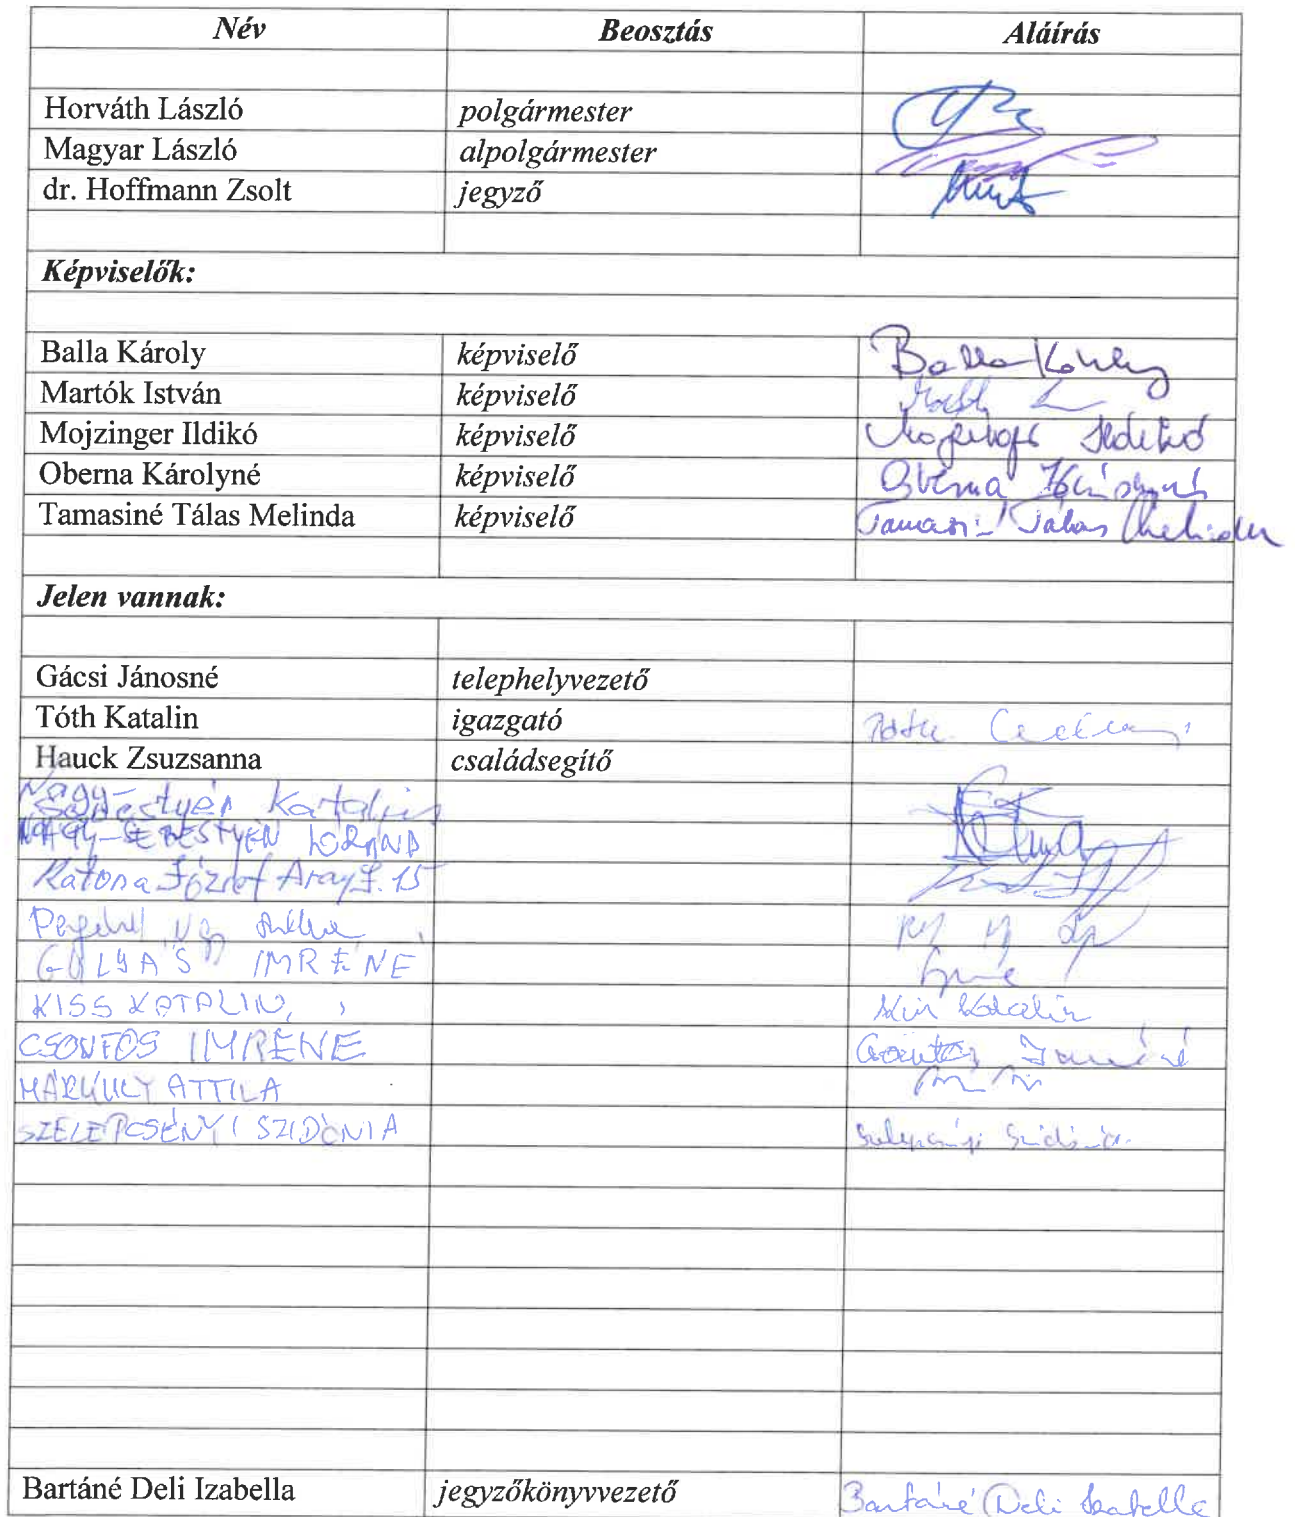 Név Beosztás Aláírás
Horváth László polgármester
Magyar László alpolgármester
dr. Hoffmann Zsolt jegyző
Képviselők:
Balla Károly képviselő Balla Károly
Martók István képviselő
Mojzinger Ildikó képviselő Mojzinger Ildikó
Oberna Károlyné képviselő Oberna Károlyné
Tamasiné Tálas Melinda képviselő Tamasiné Tálas Melinda
Jelen vannak:
Gácsi Jánosné telephelyvezető
Tóth Katalin igazgató Tóth
Hauck Zsuzsanna családsegítő
Nagy-Sebestyén Katalin
NAGY-SEBESTYÉN LÓRÁND
Katona József Arany J. 15
GULYÁS IMRÉNÉ
KISS KATALIN, Kiss Katalin
CSONTOS IMRÉNÉ Csontos Imréné
ATTILA
SZELEPCSÉNYI SZIDÓNIA Szelepcsényi Szidónia
Bartáné Deli Izabella jegyzőkönyvvezető Bartáné Deli Izabella